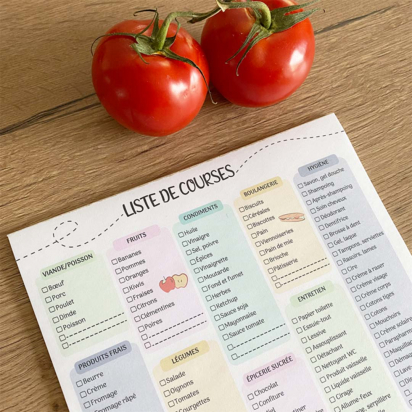 LISTE DE COURSES
VIANDE/POISSON
Bœuf
Porc
Poulet
Dinde
Poisson
FRUITS
Bananes
Pommes
Oranges
Kiwis
Fraises
Citrons
Clémentines
Poires
CONDIMENTS
Huile
Vinaigre
Sel, poivre
Épices
Vinaigrette
Moutarde
Fond et fumet
Herbes
Ketchup
Sauce soja
Mayonnaise
Sauce tomate
BOULANGERIE
Biscuits
Céréales
Biscottes
Pain
Viennoiseries
Pain de mie
Brioche
Patisserie
HYGIÈNE
Savon, gel douche
Shampoing
Après-shampoing
Soin cheveux
Déodorant
Dentifrice
Brosse à dents
Gel, laque
Tampons, serviettes
Rasoirs, lames
Cire
Crème à raser
Crème visage
Crème corps
Cotons tiges
Cotons
Mouchoirs
PRODUITS FRAIS
Beurre
Crème
Fromage
Fromage râpé
LÉGUMES
Salade
Oignons
Tomates
Courgettes
EPICERIE SUCRÉE
Chocolat
Confiture
ENTRETIEN
Papier toilette
Essuie-tout
Lessive
Assouplissant
Détachant
Nettoyant WC
Produit vaisselle
Liquide vaisselle
Éponges